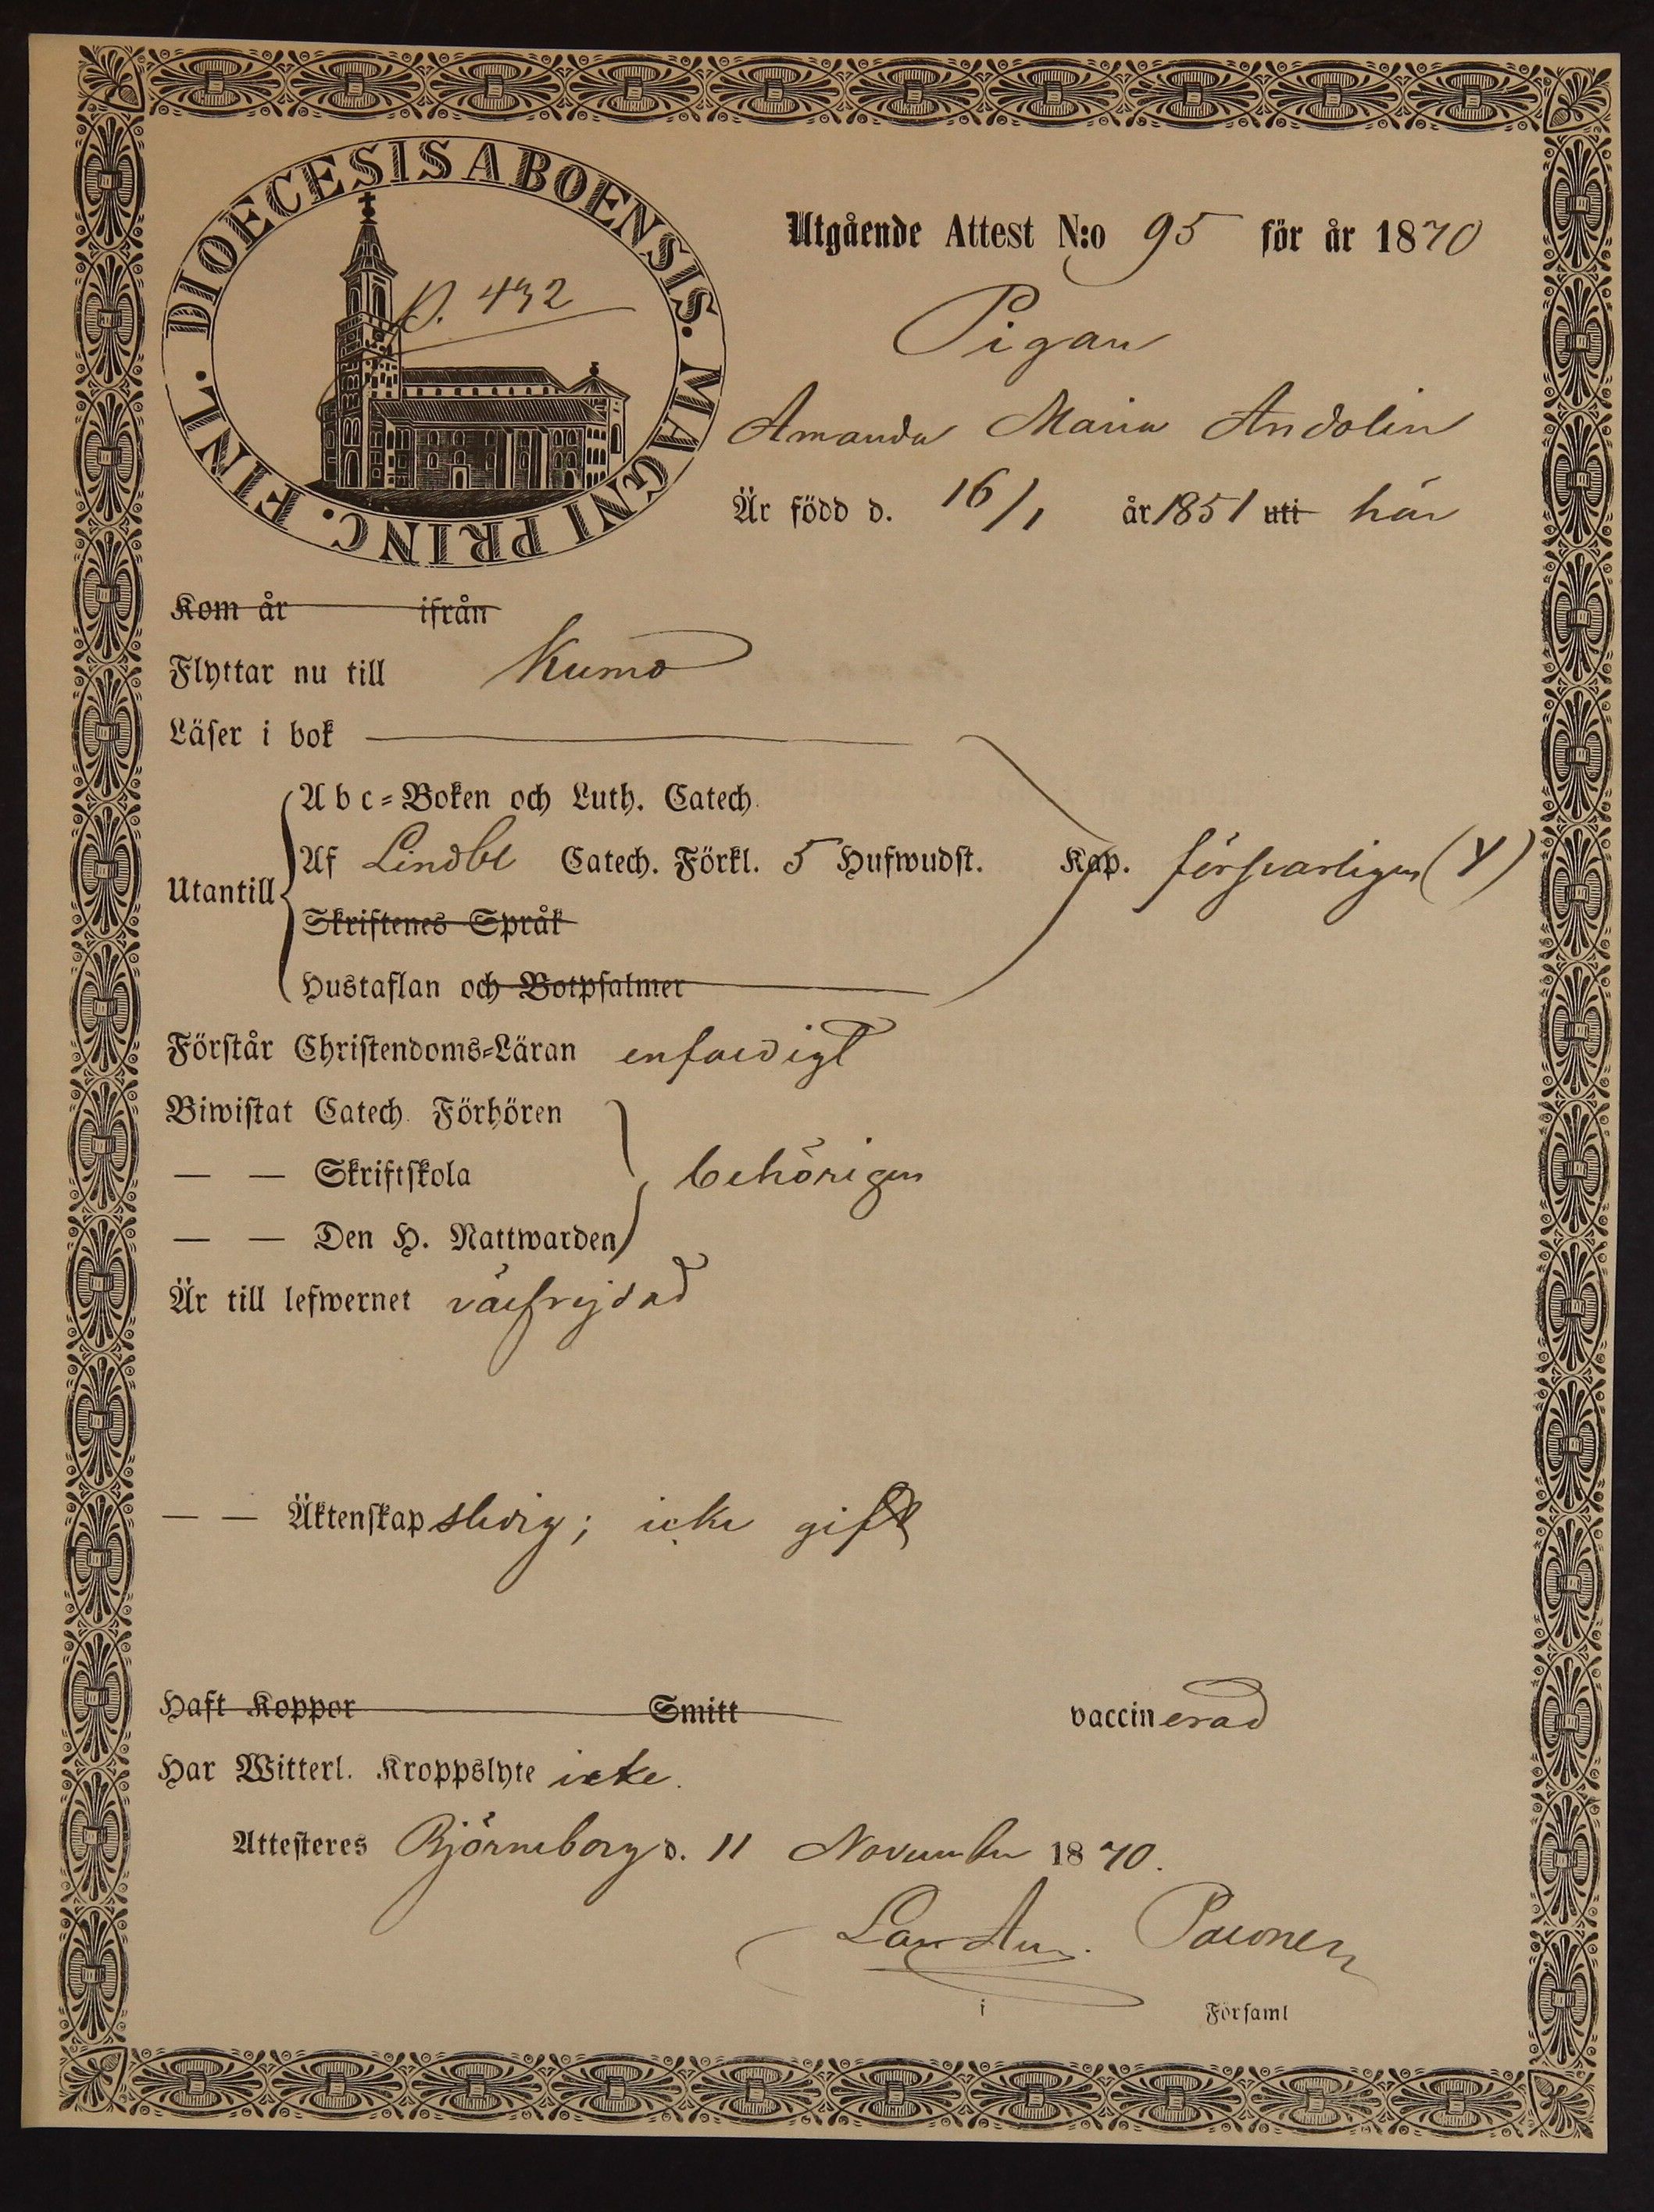 DIOECESIS ABOENSIS. MAGNI PRINC. FINL.
p. 432
Utgående Attest N:o 95 för år 1870
Pigan
Amanda Maria Andolin
Är född d. 16/1 år 1851 uti här
Kom år ifrån
Flyttar nu till Kumo
Läser i bok
Abc-Boken och Luth. Catech.
Utantill Af Lindbl Catech. Förkl. 5 Hufwudst. Kap. försvarligen (Y)
Skriftenes Språk
Hustaflan och Botpsalmer
Förstår Christendoms-Läran enfaldigt
Biwistat Catech. Förhören
— — Skriftskola behörigen
— — Den H. Nattwarden
Är till lefwernet välfrejdad
— — Äktenskap sledig; icke gift
Haft Koppor Smitt vaccinerad
Har Witterl. Kroppslyte icke.
Attesteres Björneborg d. 11 November 1870.
Pawonen
i Församl